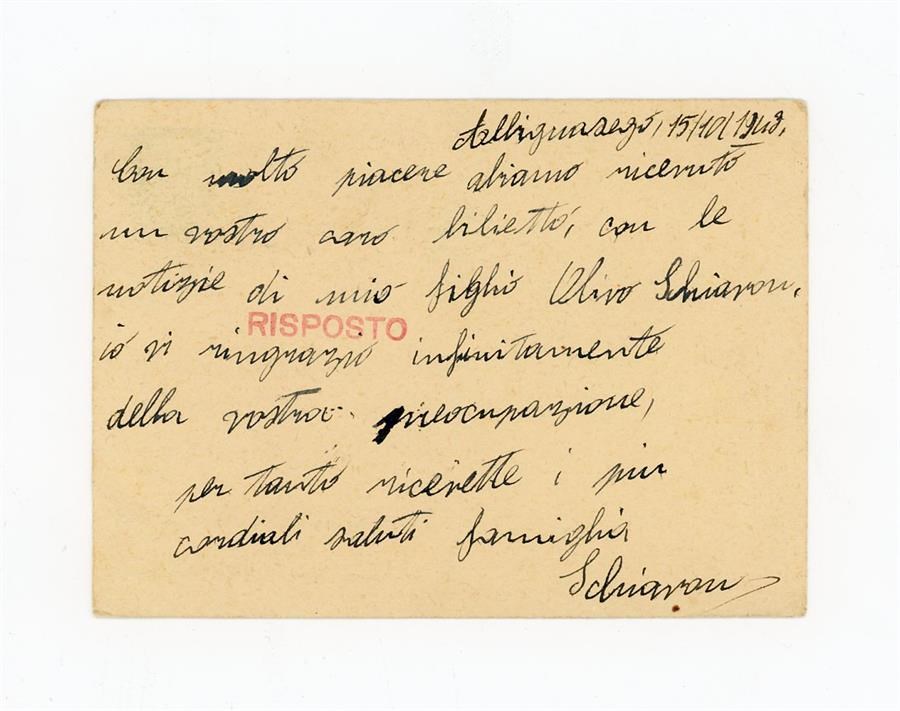 Albignasego, 15/10/1943,
Con molto piacere abiamo ricevuto
un vostro caro bilietto, con le
notizie di mio figlio Olivo Schiavon,
RISPOSTO
io vi ringrazio infinitamente
della vostra preocupazione,
per tanto ricevette i piu
cordiali saluti famiglia
Schiavon